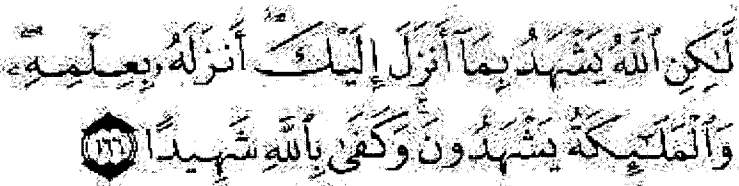 لَّٰكِنِ ٱللَّهُ يَشْهَدُ بِمَآ أَنزَلَ إِلَيْكَ ۖ أَنزَلَهُۥ بِعِلْمِهِۦ ۖ
وَٱلْمَلَٰٓئِكَةُ يَشْهَدُونَ ۚ وَكَفَىٰ بِٱللَّهِ شَهِيدًا ١٦٦